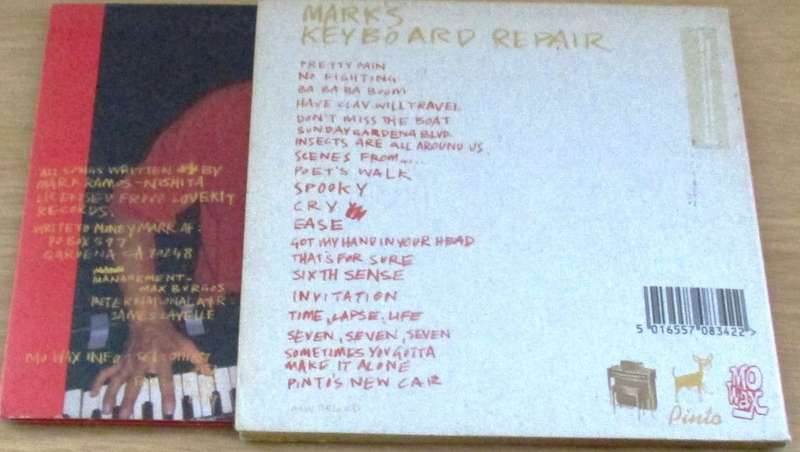 MARK'S
KEYBOARD REPAIR
PRETTY PAIN
NO FIGHTING
BA BA BA BOOM
HAVE CLAV WILL TRAVEL
DON'T MISS THE BOAT
SUNDAY GARDENA BLVD.
INSECTS ARE ALL AROUND US
SCENES FROM.....
POET'S WALK
SPOOKY
CRY
EASE
GOT MY HAND IN YOUR HEAD
THAT'S FOR SURE
SIXTH SENSE
INVITATION
TIME, LAPSE, LIFE
SEVEN, SEVEN, SEVEN
SOMETIMES YOU GOTTA
MAKE IT ALONE
PINTO'S NEW CAR
5 016557 083422 >
Pinto
MO
WAX
ALL SONGS WRITTEN BY
MARK RAMOS-NISHITA
LICENSED FROM LOVEKIT
RECORDS.
WRITE TO MONEY MARK AT:
PO BOX 597
GARDENA CA 90248
MANAGEMENT-
MAX BURGOS
INTERNATIONAL A+R:
JAMES LAVELLE
MO WAX INFO: